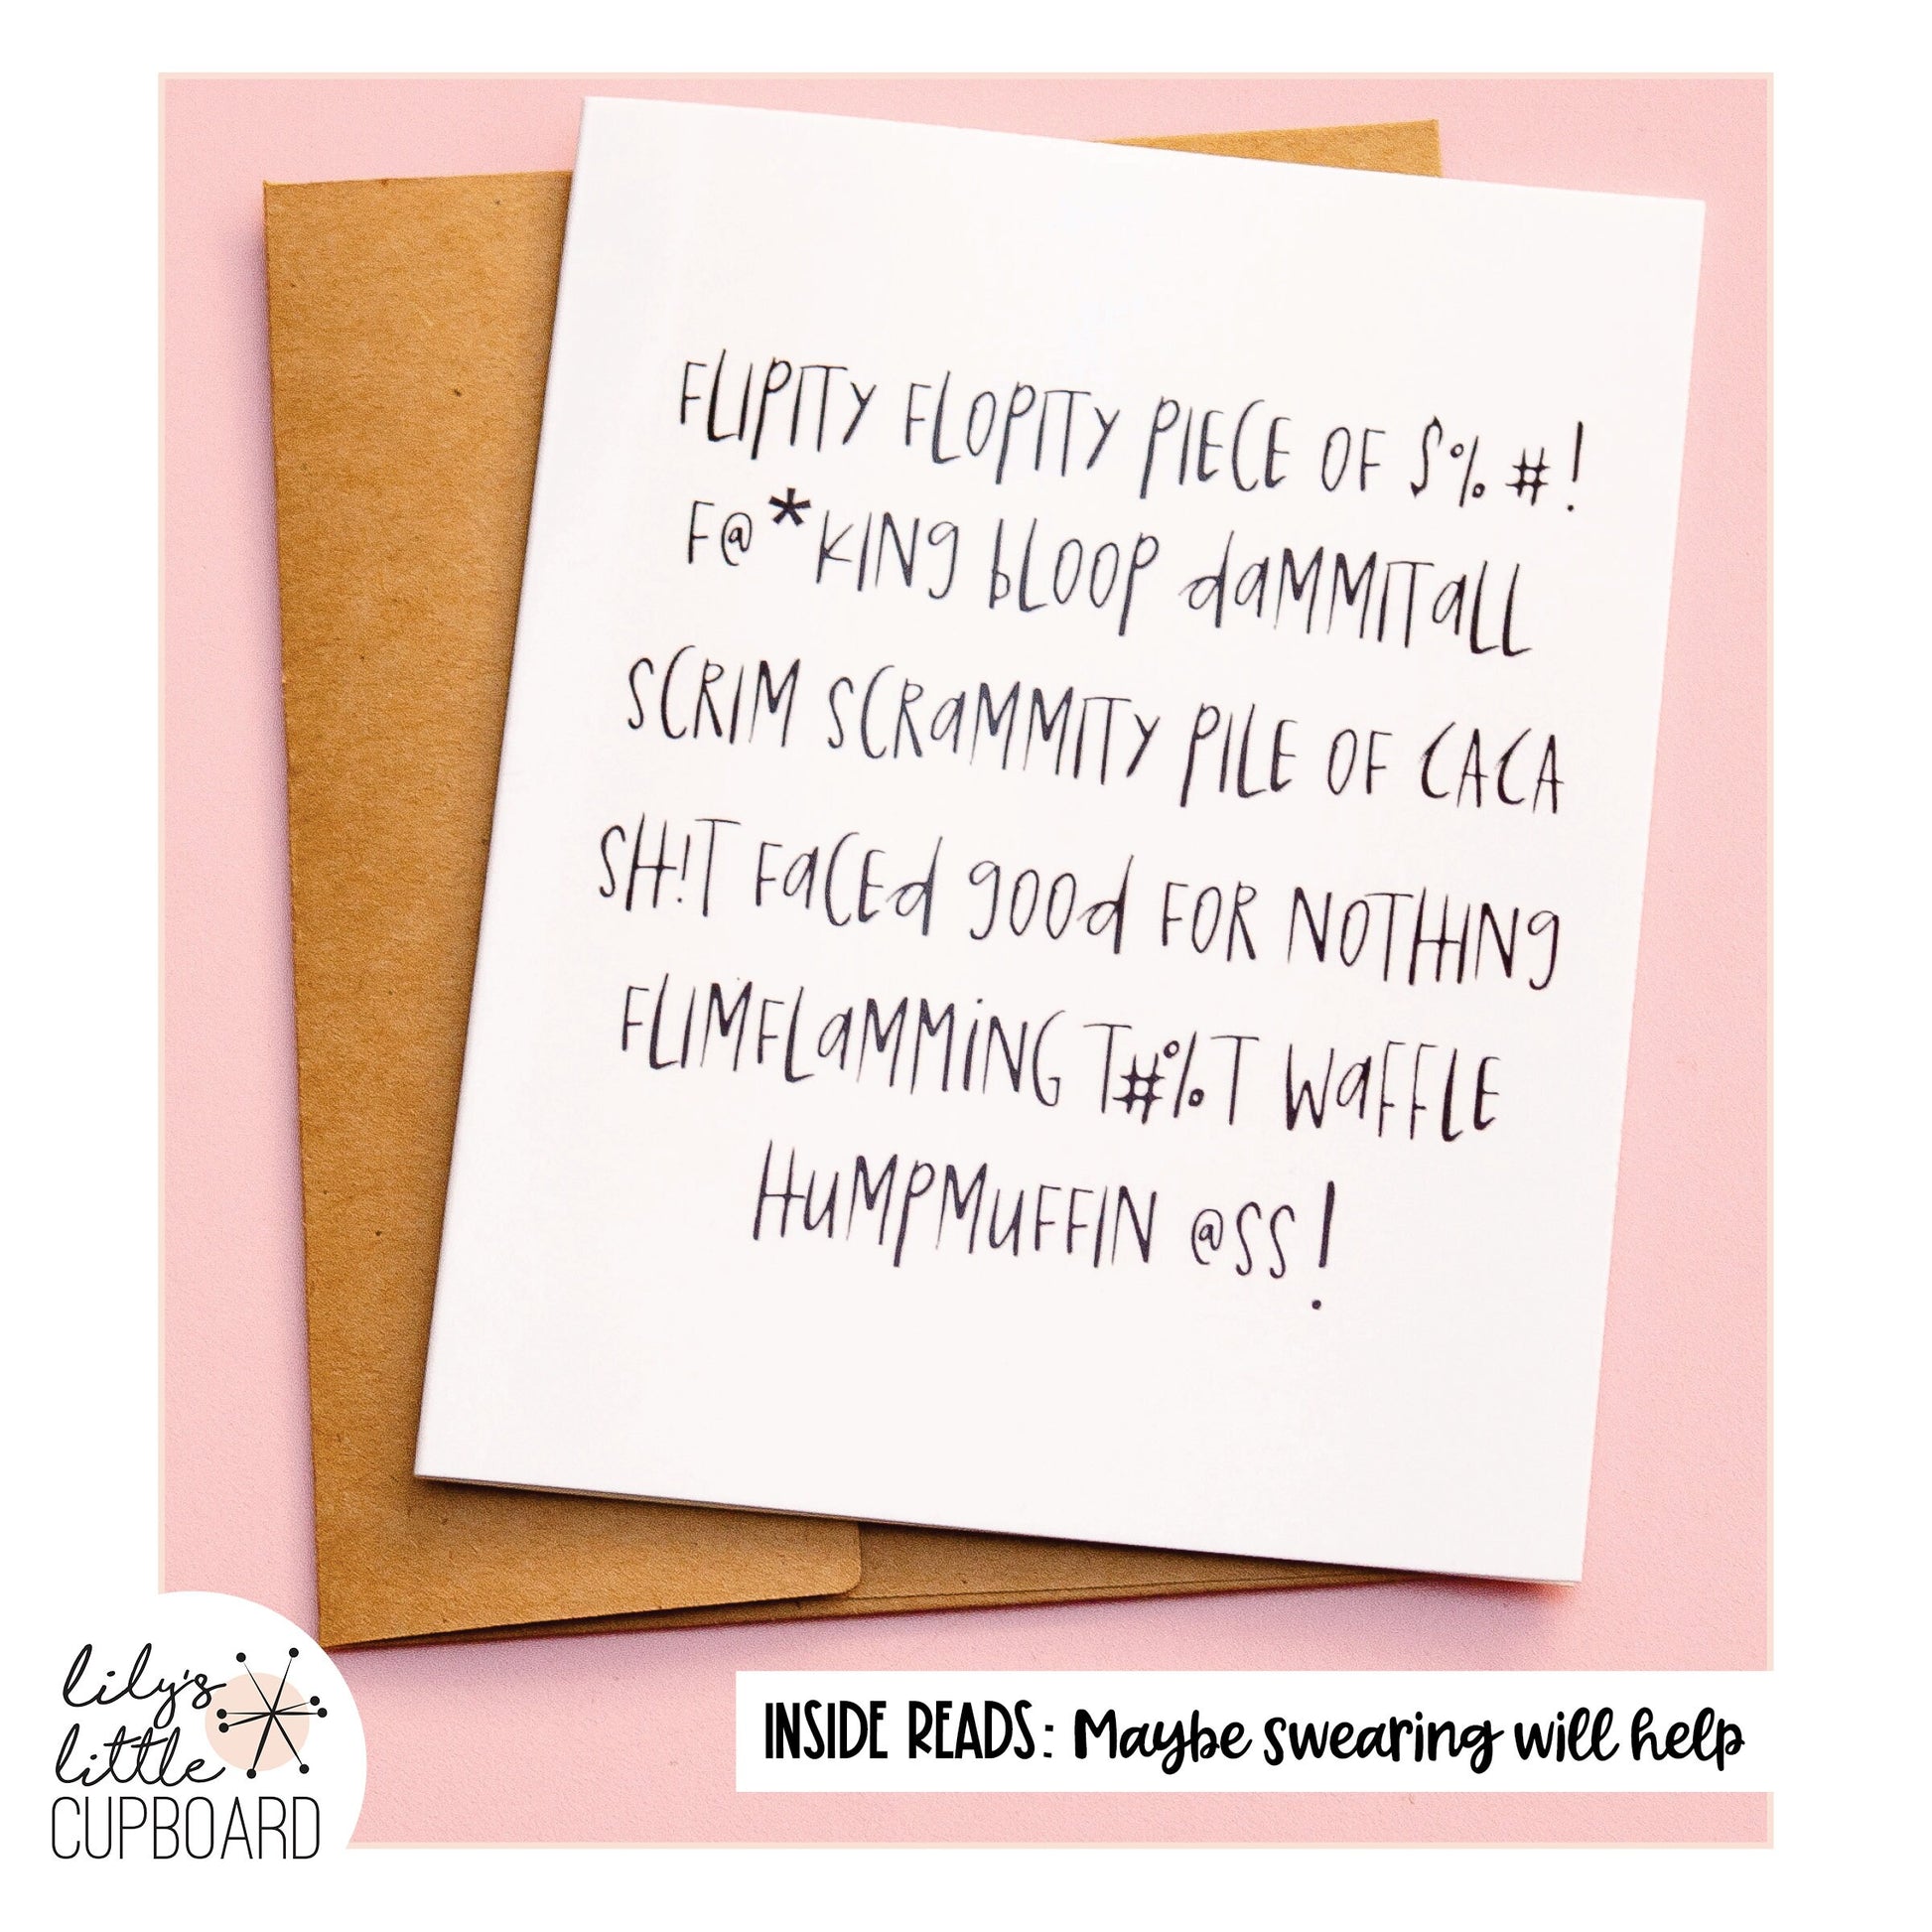 FLIPITY FLOPITY PIECE OF $%#!
F@*KING bLOOP daMMITaLL
SCRIM SCRaMMITY PILE OF CACA
SH!T FaCEd gOOd FOR NOTHINg
FLIMFLaMMiNG T#%T WaFFLE
HuMPMuFFIN @SS!
lily's
little
CUPBOARD
INSIDE READS: Maybe swearing will help